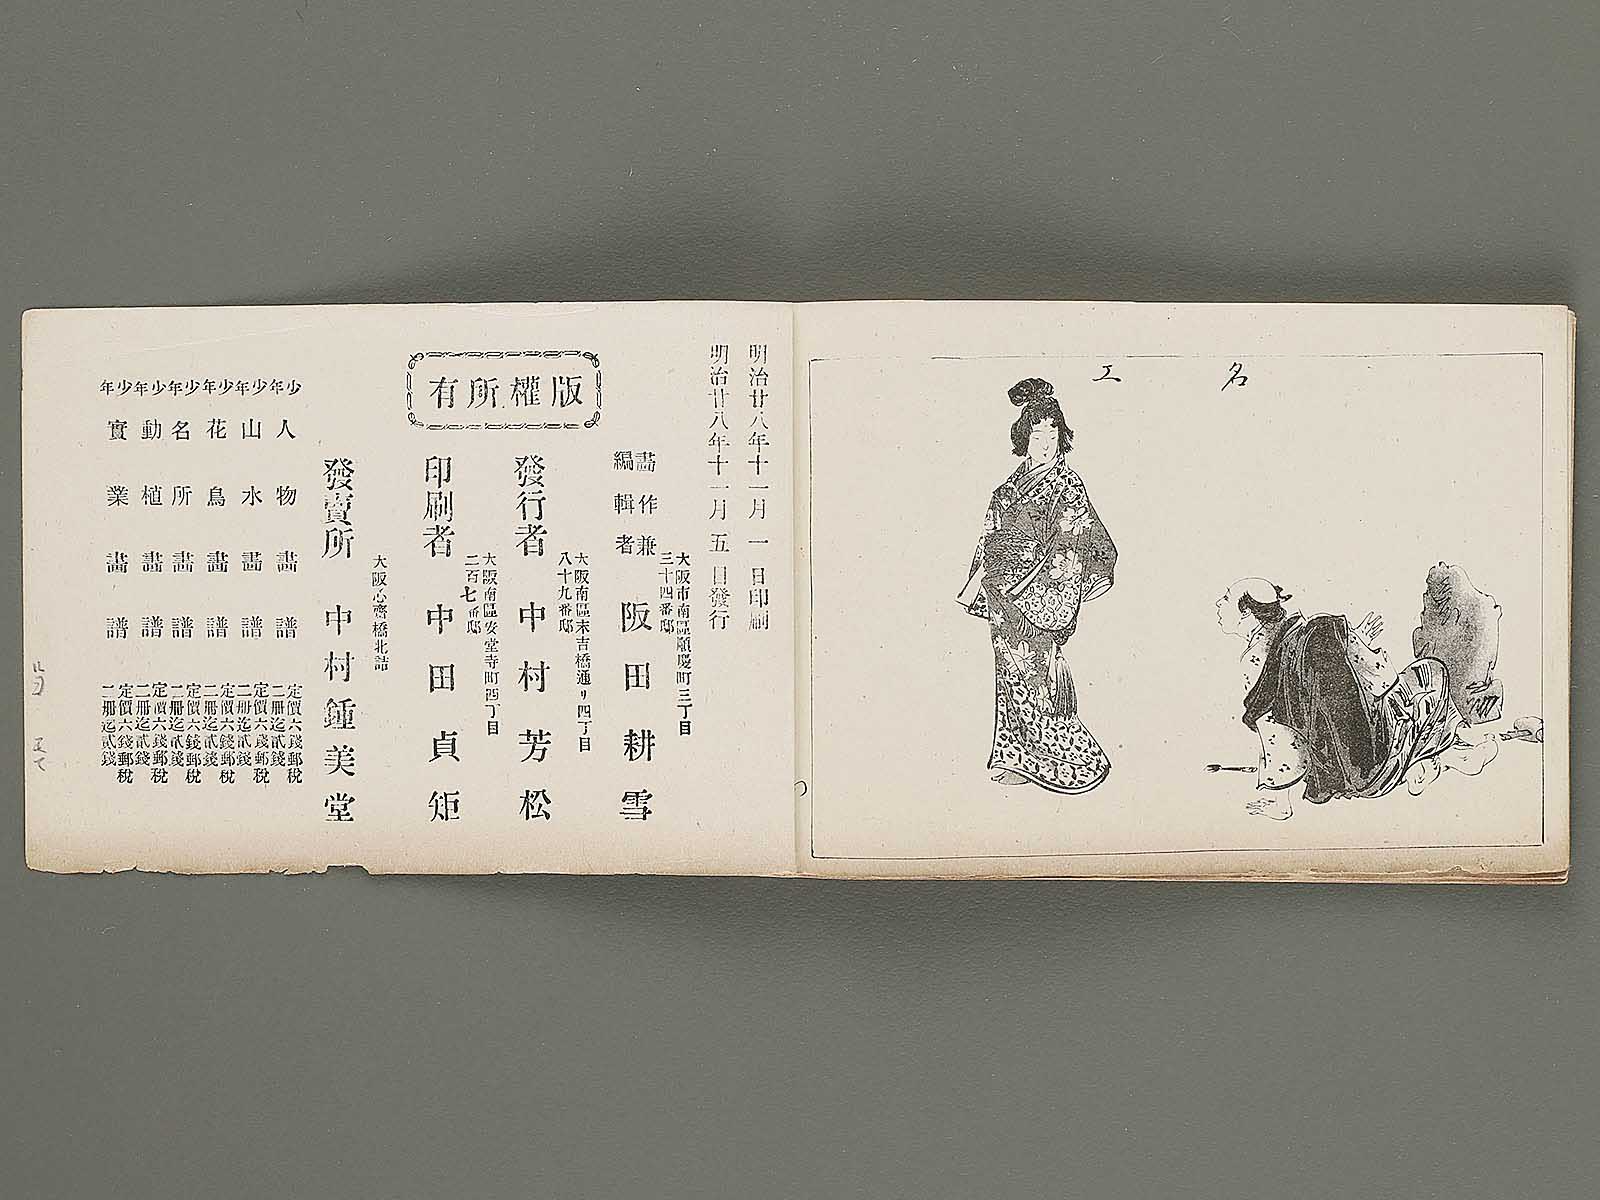 名工
明治廿八年十一月一日印刷
明治廿八年十一月五日發行
大阪市南區順慶町三丁目
三十四番邸
畵作兼
編輯者
阪田耕雪
大阪南區末吉橋通リ四丁目
八十九番邸
發行者 中村芳松
版權所有
大阪南區安堂寺町四丁目
二百七番邸
印刷者 中田貞矩
大阪心齋橋北詰
發賣所 中村鍾美堂
少年人物畵譜 定價六錢郵稅二冊迄貳錢
少年山水畵譜 定價六錢郵稅二冊迄貳錢
少年花鳥畵譜 定價六錢郵稅二冊迄貳錢
少年名所畵譜 定價六錢郵稅二冊迄貳錢
少年動植畵譜 定價六錢郵稅二冊迄貳錢
少年實業畵譜 定價六錢郵稅二冊迄貳錢